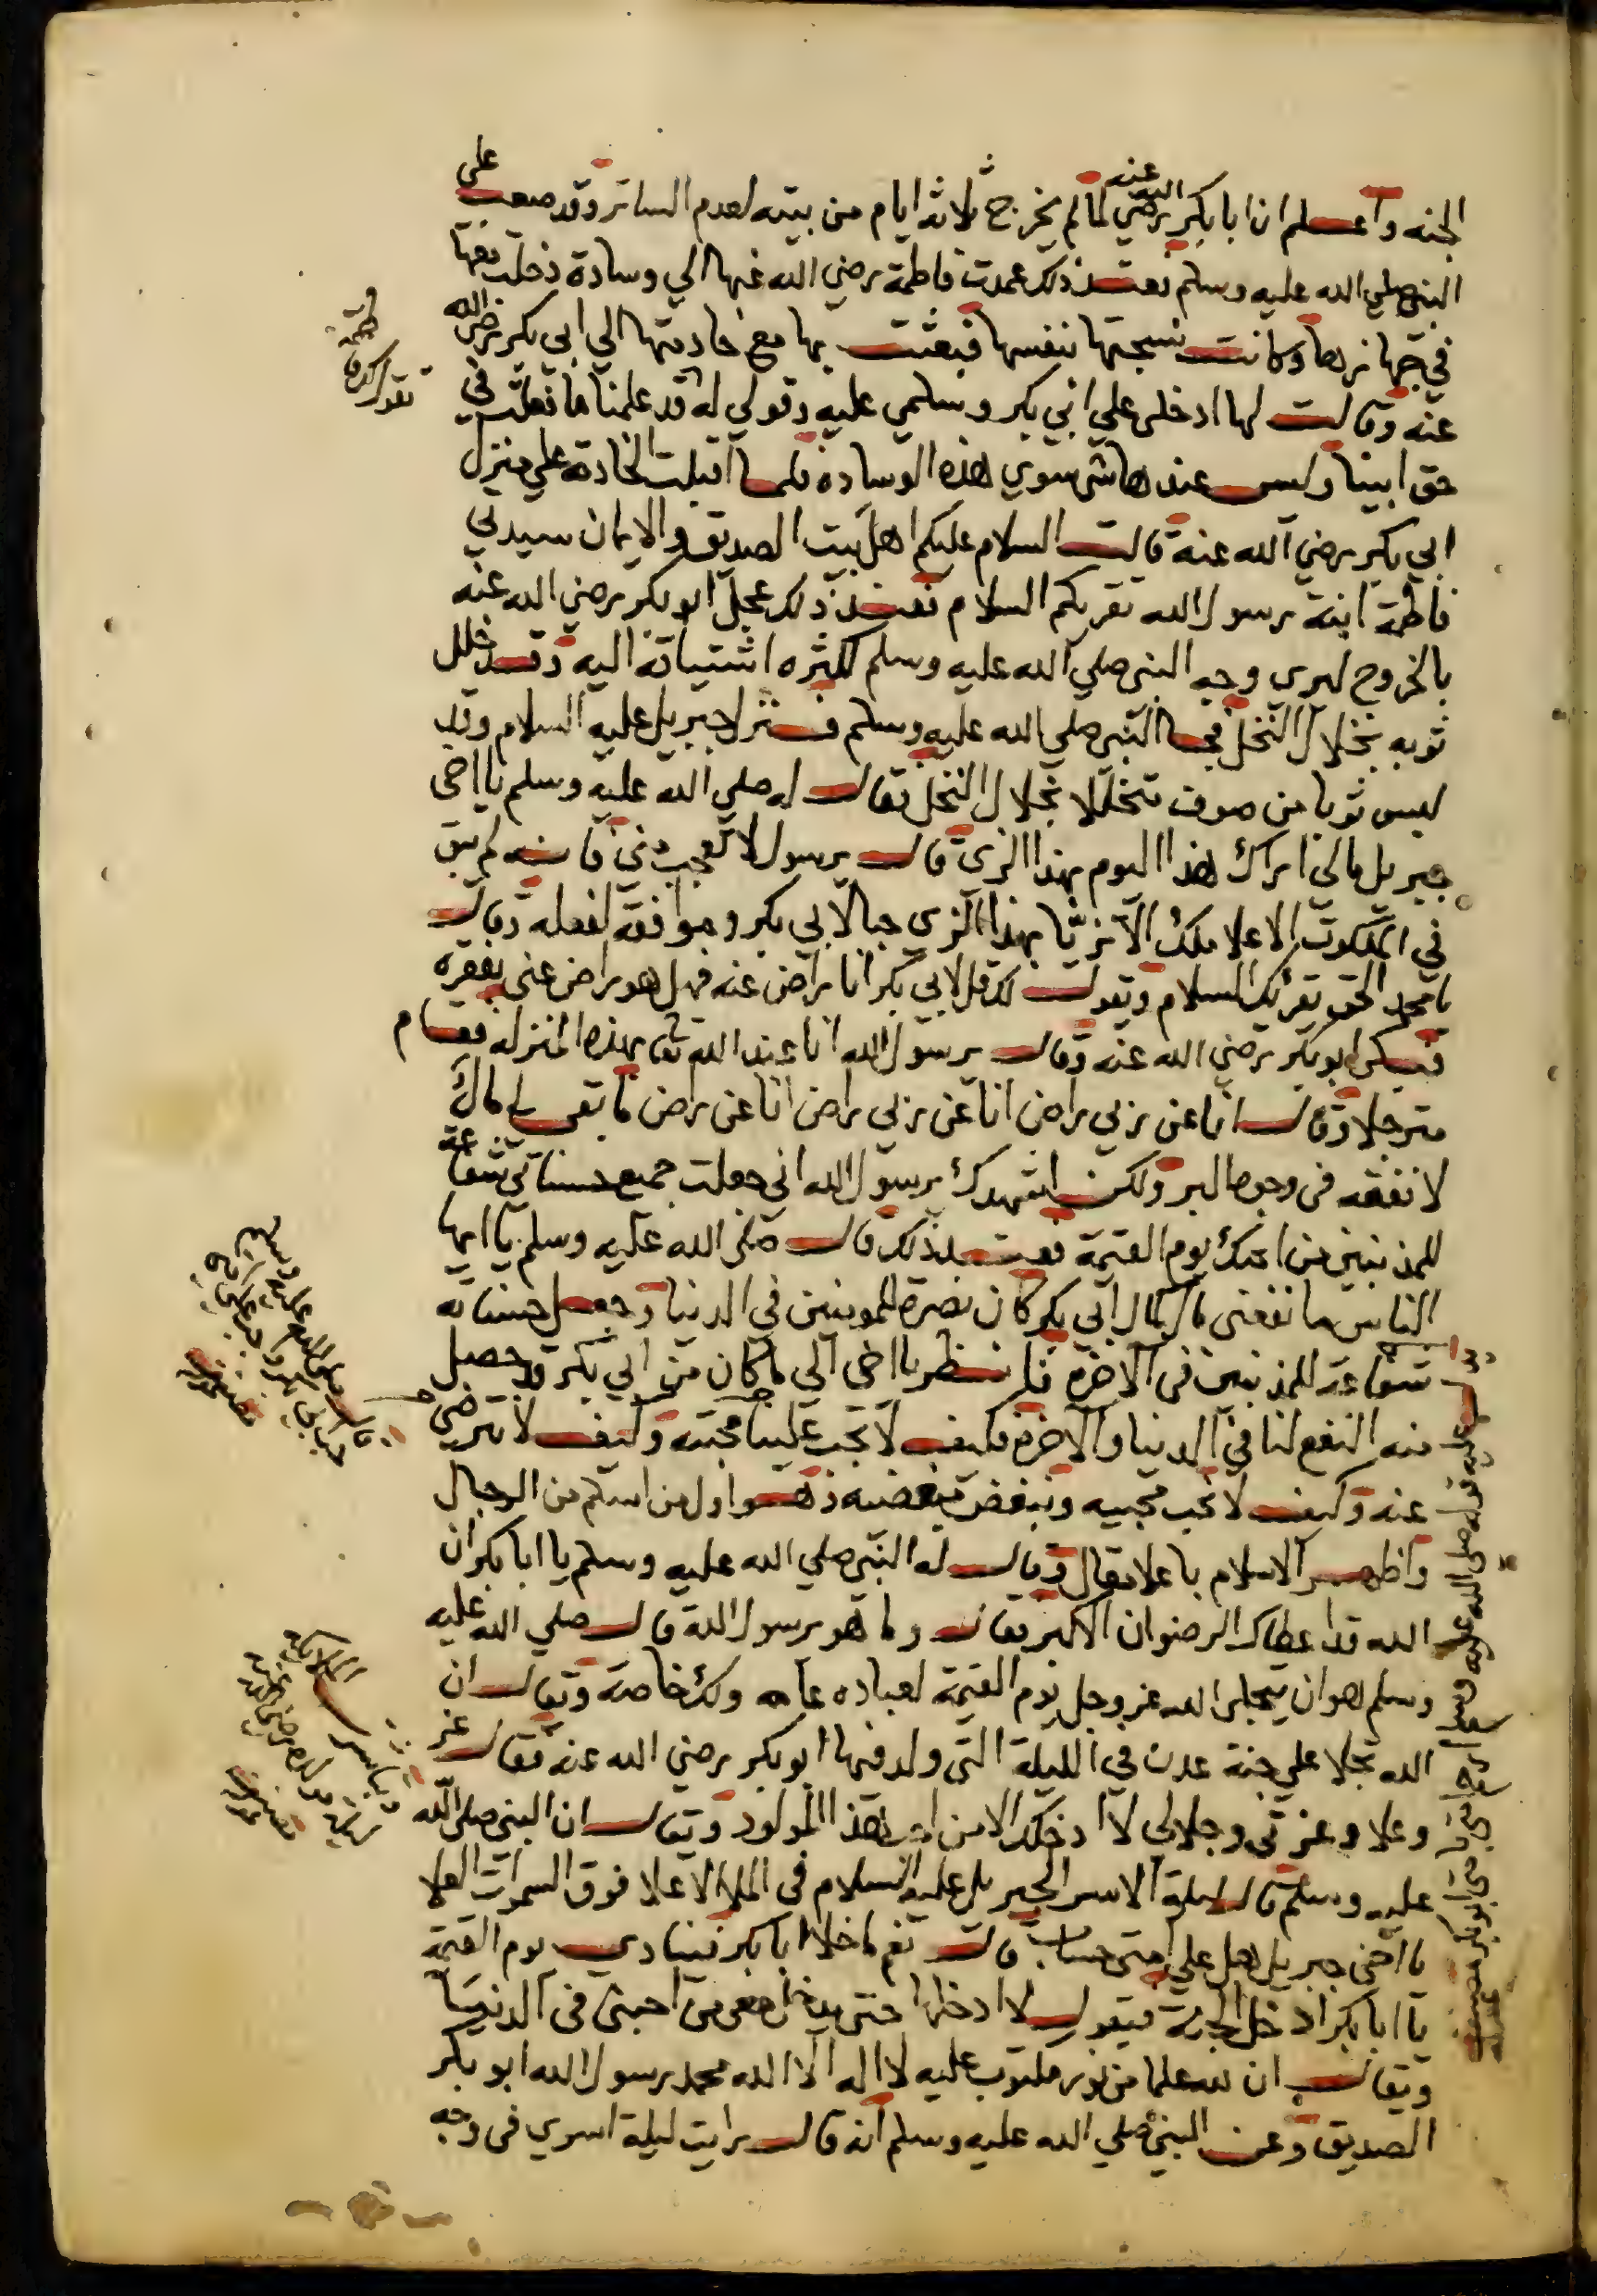 الجنه واعلم ان ابا بكر رضي الله عنه لما لم يخرج ثلاثه ايام من بيته لعدم الساتر وقد صعب على
النبي صلي الله عليه وسلم فعند ذلك عمدت فاطمة رضي الله عنها الي وسادة دخلت معها
في جهازها وكانت نسجتها بنفسها فبعثت بها مع خادمتها الي ابي بكر رضي الله
عنه وقالت لها ادخلى علي ابي بكر وسلمي عليه وقولي له قد علمنا ما فعلت في
حق ابينا وليس عندها شى سوي هذه الوساده فلما اقبلت الخادمه علي منزل
ابي بكر رضي الله عنه قالت السلام عليكم اهل بيت الصديق والايمان سيدتي
فاطمة ابنة رسول الله تقريكم السلام فعند ذلك عجل ابو بكر رضي الله عنه
بالخروج ليرى وجه النبى صلي الله عليه وسلم لكثره اشتياقه اليه وقد خلل
ثوبه بخلال النخل فجا النبى صلي الله عليه وسلم فنزل جبريل عليه السلام وقد
لبس ثوبا من صوف متخللا بخلال النخل فقال له صلي الله عليه وسلم يا اخى
جبريل مالي اراك هذا اليوم بهذا الزى قال يرسول لا تعجب منى فانه لم يبق
في الملكوت الاعلا ملك الا تزيا بهذا الزي حبا لابي بكر وموافقة لفعله وقال
يا محمد الحق يقريك السلام ويقول لك قل لابي بكر انا راض عنه فهل هو راض عنى بفقره
فبكى ابو بكر رضي الله عنه وقال يرسول الله انا عند الله تعا بهذه المنزله فقام
مترجلا وقال انا عن ربي راض انا عن ربي راض انا عن راض ما بقى لى مال
لا نفقه فى وجوها البر ولكن اشهدك يرسول الله اني جعلت جميع حسناتي شفاعة
للمذنبين من امتك يوم القيمة فعند ذلك قال صلى الله عليه وسلم يا ايها
الناس ما نفعنى مال كمال ابي بكر كان نصرة للمومنين في الدنيا وجعل حسناته
شفاعة للمذنبين فى الاخره فانظر يا اخى الي ما كان من ابي بكر وحصل
منه النفع لنا في الدنيا والاخره فكيف لا تجب علينا محبته وكيف لا نترضى
عنه وكيف لا نحب محبيه ونبغض مبغضيه وهو اول من اسلم من الرجال
واظهر الاسلام باعلا مقال وقال له النبى صلي الله عليه وسلم يا ابا بكر ان
الله قد اعطاك الرضوان الاكبر فقال وما هو يرسول الله قال صلي الله عليه
وسلم هو ان يتجلى الله عز وجل يوم القيمة لعباده عامه ولك خاصة وقال ان
الله تجلا علي جنة عدن في الليلة التى ولد فيها ابو بكر رضي الله عنه فقال عز
وعلا وعزتى وجلالي لا ادخلك الا من احب هذا المولود ويقال ان النبى صلى الله
عليه وسلم قال ليلة الاسرا لجبريل عليه السلام فى الملا الاعلا فوق السموات العلا
يا اخى جبريل هل علي امتى حساب قال نعم ما خلا ابا بكر فينادى يوم القيمة
يا ابا بكر ادخل الجنة فيقول لا ادخلها حتى يدخل معى من احبنى فى الدنيا
ويقال ان لله علما من نور مكتوب عليه لا اله الا الله محمد رسول الله ابو بكر
الصديق وعن النبى صلي الله عليه وسلم انه قال رايت ليلة اسري فى وجه